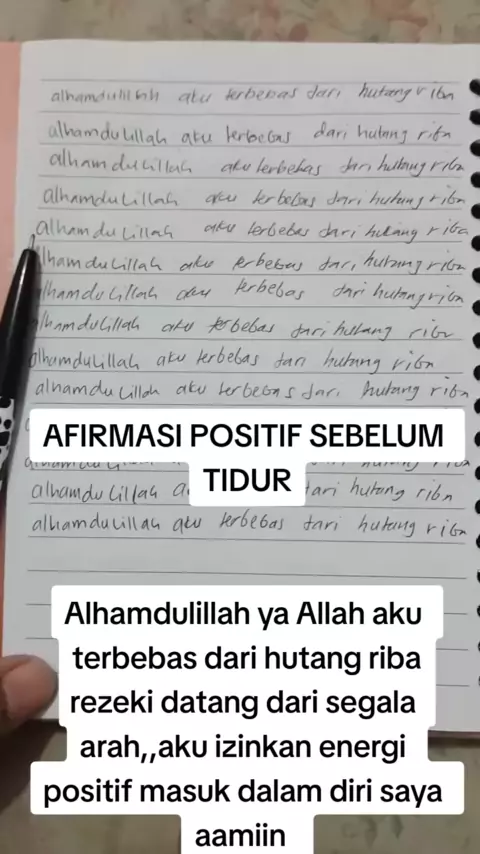 alhamdulillah aku terbebas dari hutang riba
alhamdulillah aku terbebas dari hutang riba
alhamdulillah aku terbebas dari hutang riba
alhamdulillah aku terbebas dari hutang riba
alhamdulillah aku terbebas dari hutang riba
alhamdulillah aku terbebas dari hutang riba
alhamdulillah aku terbebas dari hutang riba
alhamdulillah aku terbebas dari hutang riba
alhamdulillah aku terbebas dari hutang riba
alhamdulillah aku terbebas dari hutang riba
AFIRMASI POSITIF SEBELUM
TIDUR
alhamdulillah dari hutang riba
alhamdulillah aku terbebas dari hutang riba
Alhamdulillah ya Allah aku
terbebas dari hutang riba
rezeki datang dari segala
arah,,aku izinkan energi
positif masuk dalam diri saya
aamiin